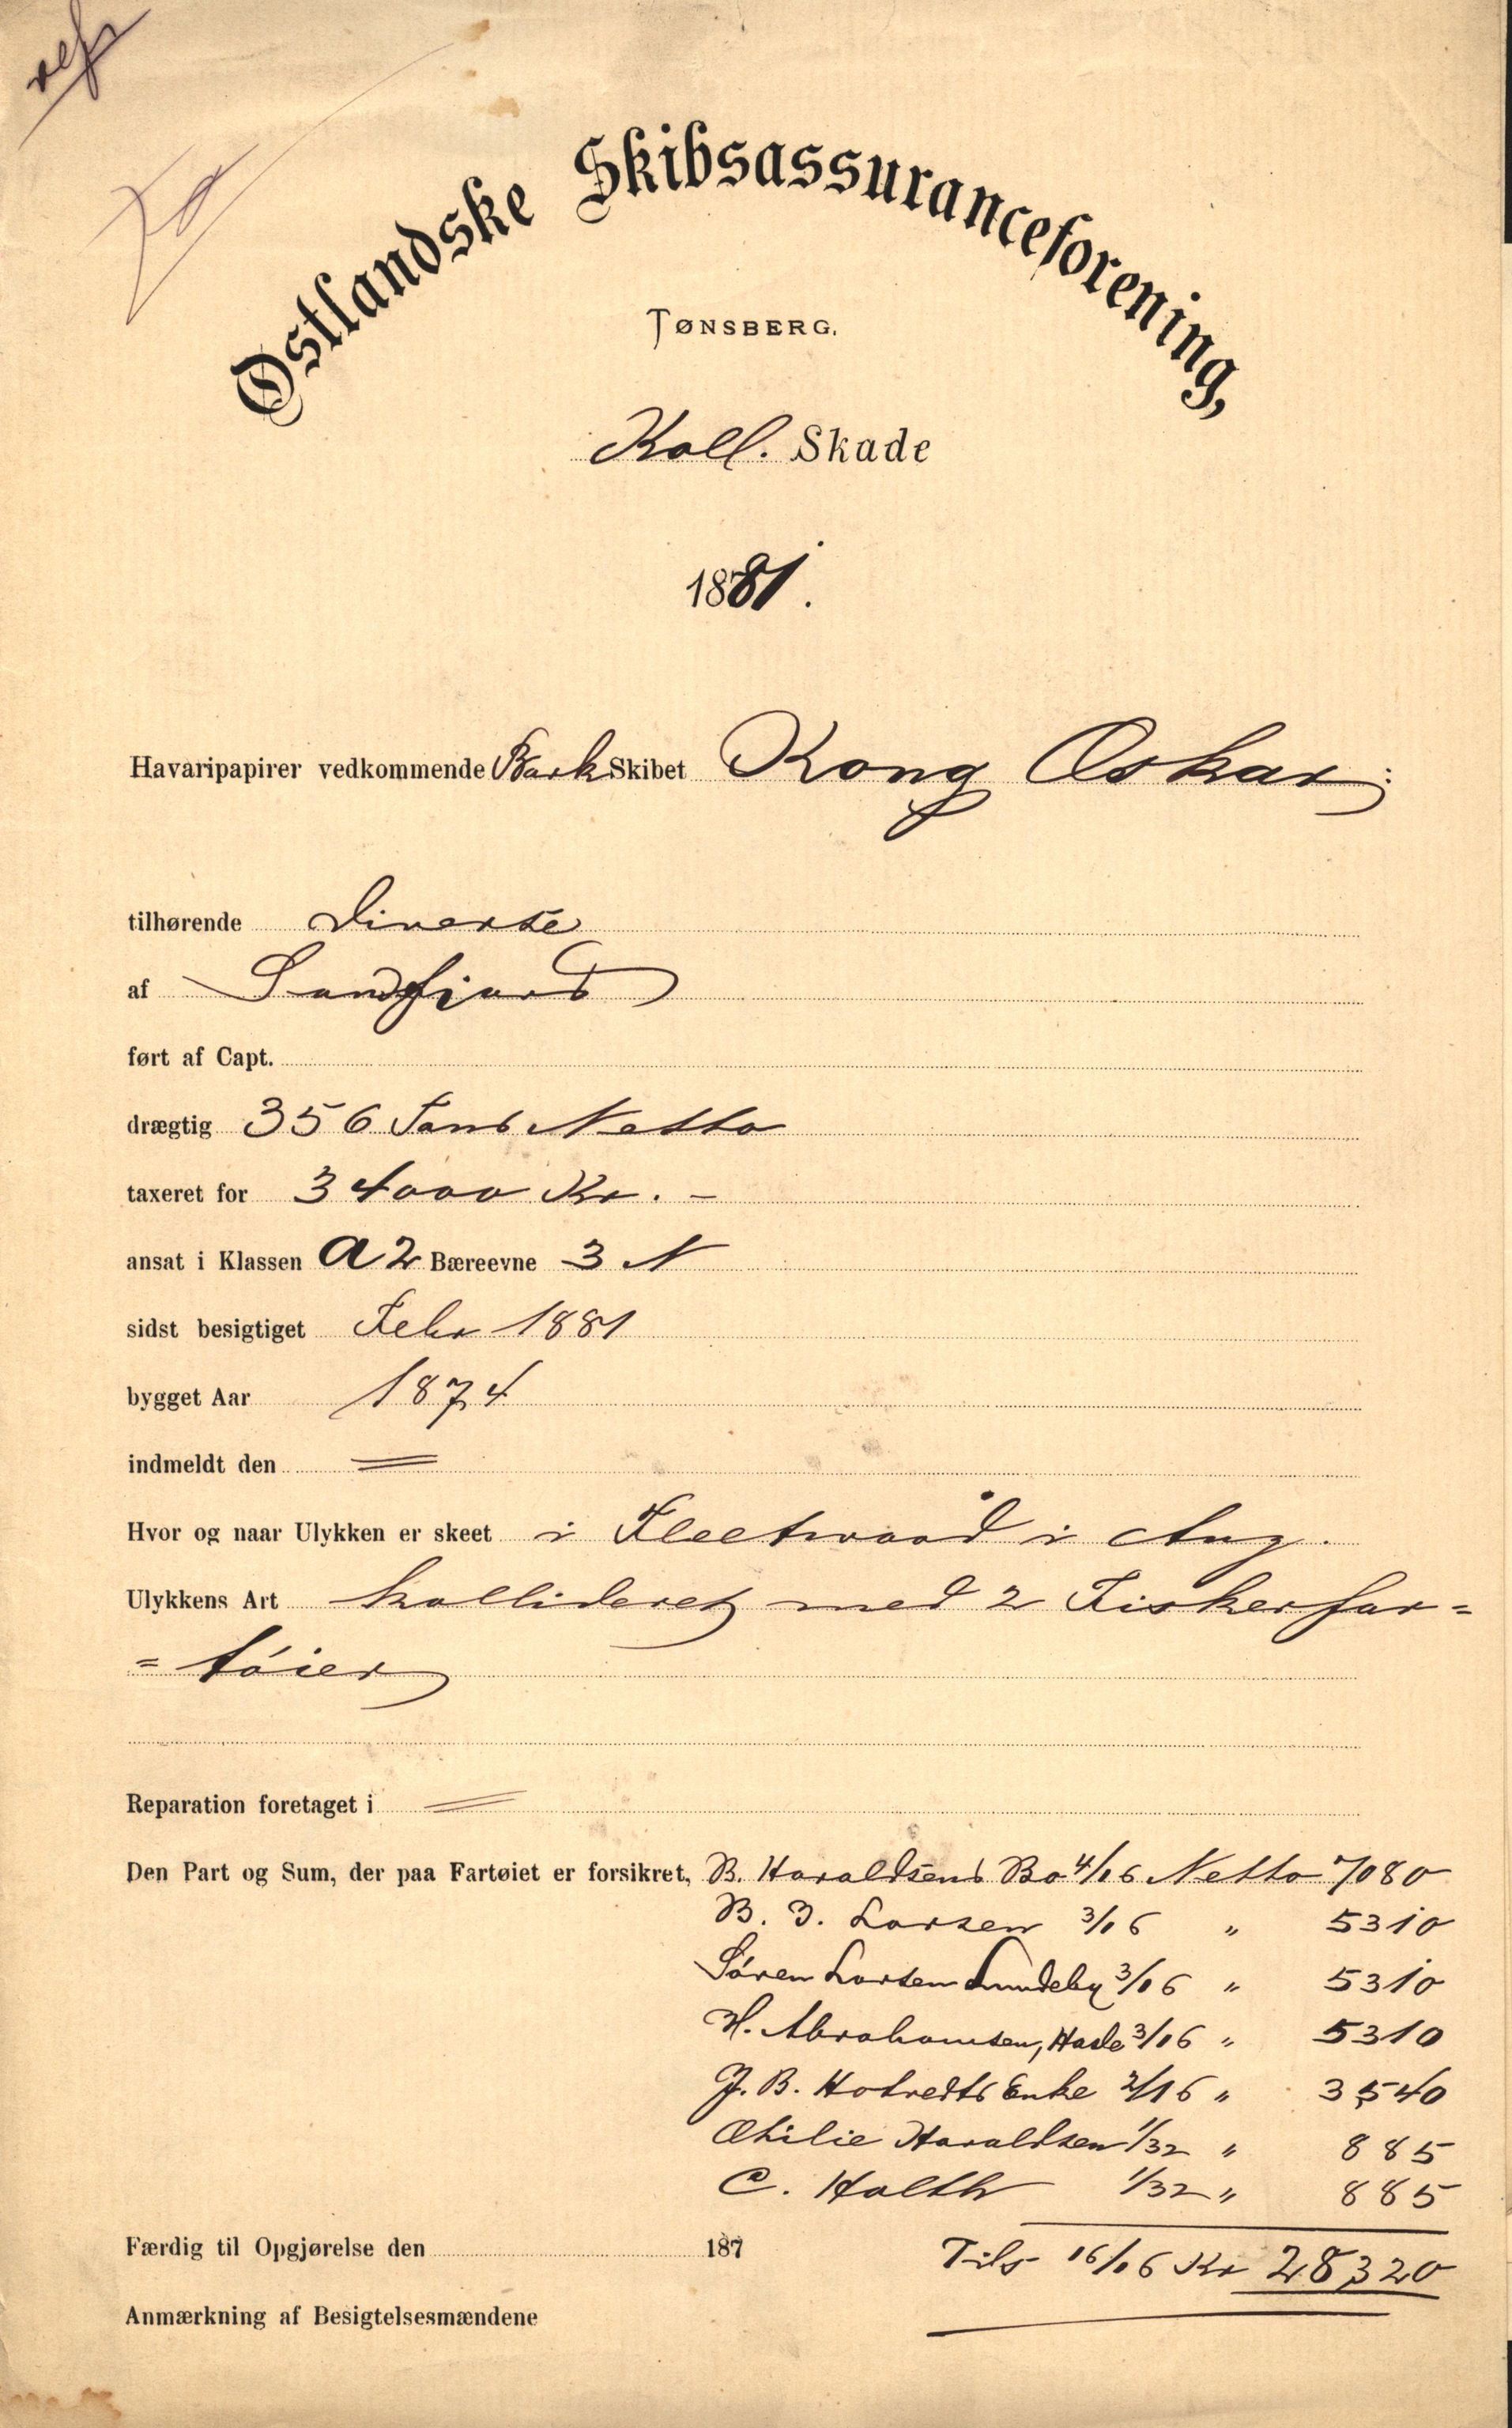 Østlandske Skibsassuranceforening,
TØNSBERG.
Koll. Skade
1881.
Havaripapirer vedkommende Bark Skibet Kong Oskar
tilhørende Diverse
af Sandfjord
ført af Capt.
drægtig 356 Tons Netto
taxeret for 34000 Kr. –
ansat i Klassen A2 Bæreevne 3 N
sidst besigtiget Febr 1881
bygget Aar 1874
indmeldt den =
Hvor og naar Ulykken er skeet i Fleetwood i Aug.
Ulykkens Art kollideret med 2 Fiskerfar=
=tøier
Reparation foretaget i =
Den Part og Sum, der paa Fartøiet er forsikret, B. Haraldsens Bo 4/16 Netto 7080
B. J. Larsen 3/16 " 5310
Søren Larsen Lundeby 3/16 " 5310
H. Abrahamsen, Hasle 3/16 " 5310
J. B. Hotvedts Enke 2/16 " 3540
Othilie Haraldsen 1/32 " 885
C. Holth 1/32 " 885
Færdig til Opgjørelse den 187
Tils 16/16 Kr 28320
Anmærkning af Besigtelsesmændene